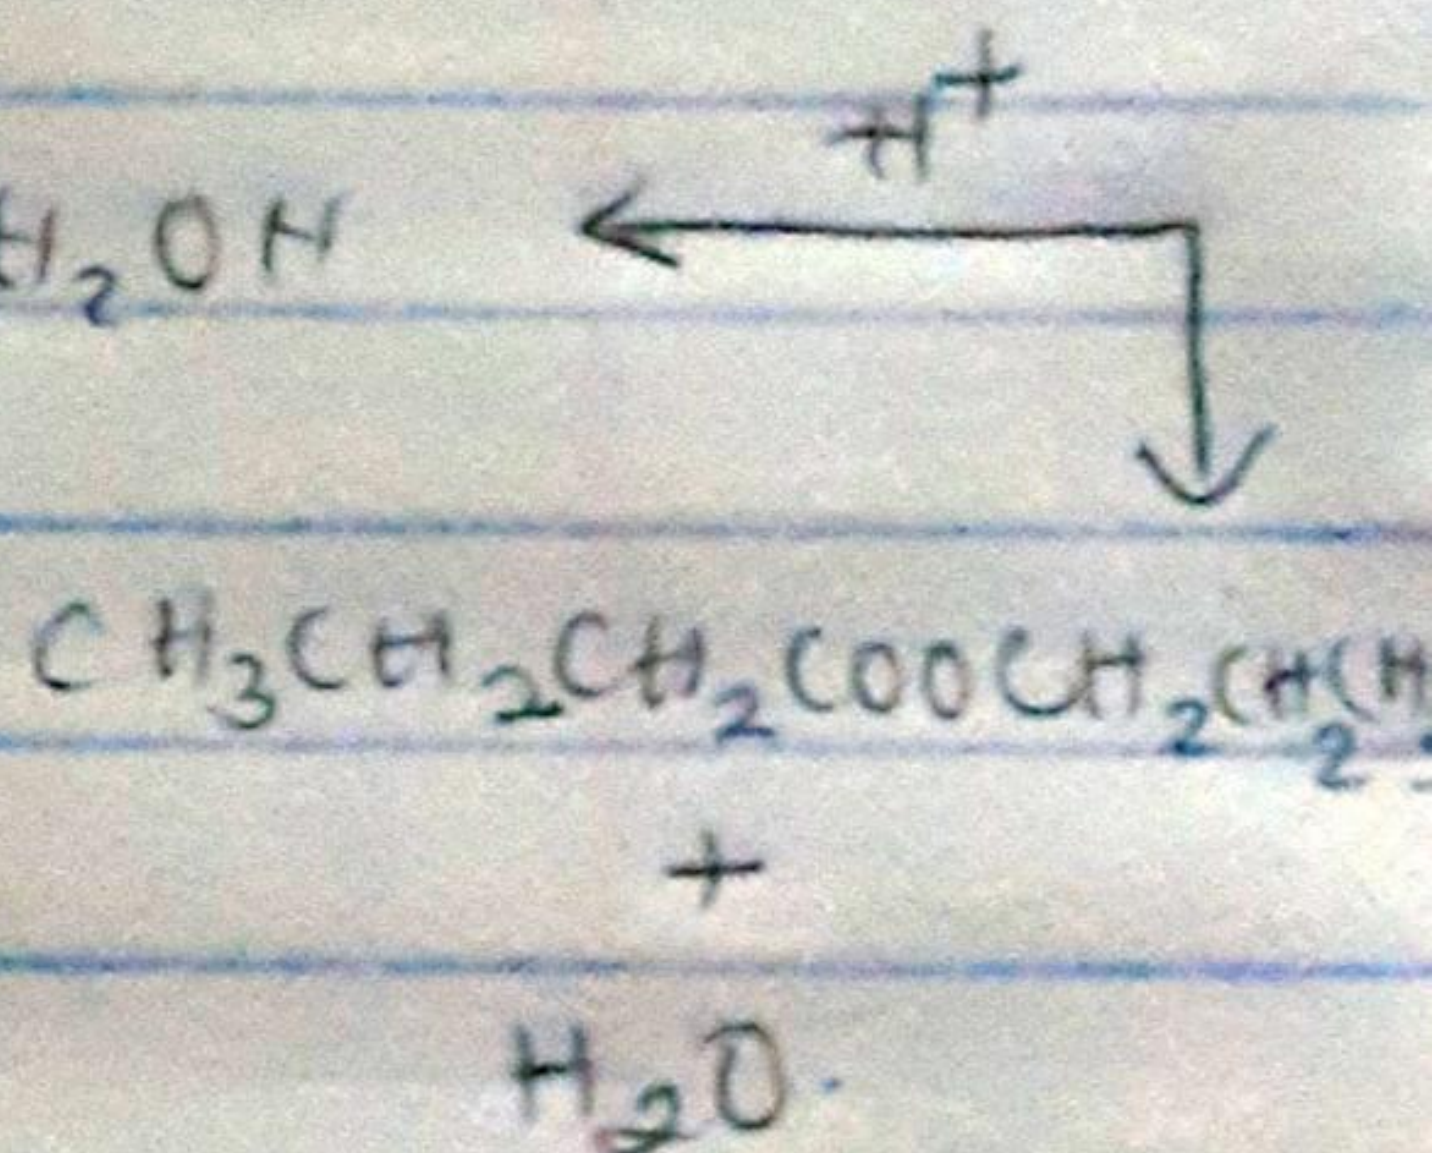 H⁺
H₂OH
CH₃CH₂CH₂COOCH₂CH₂CH
+
H₂O.